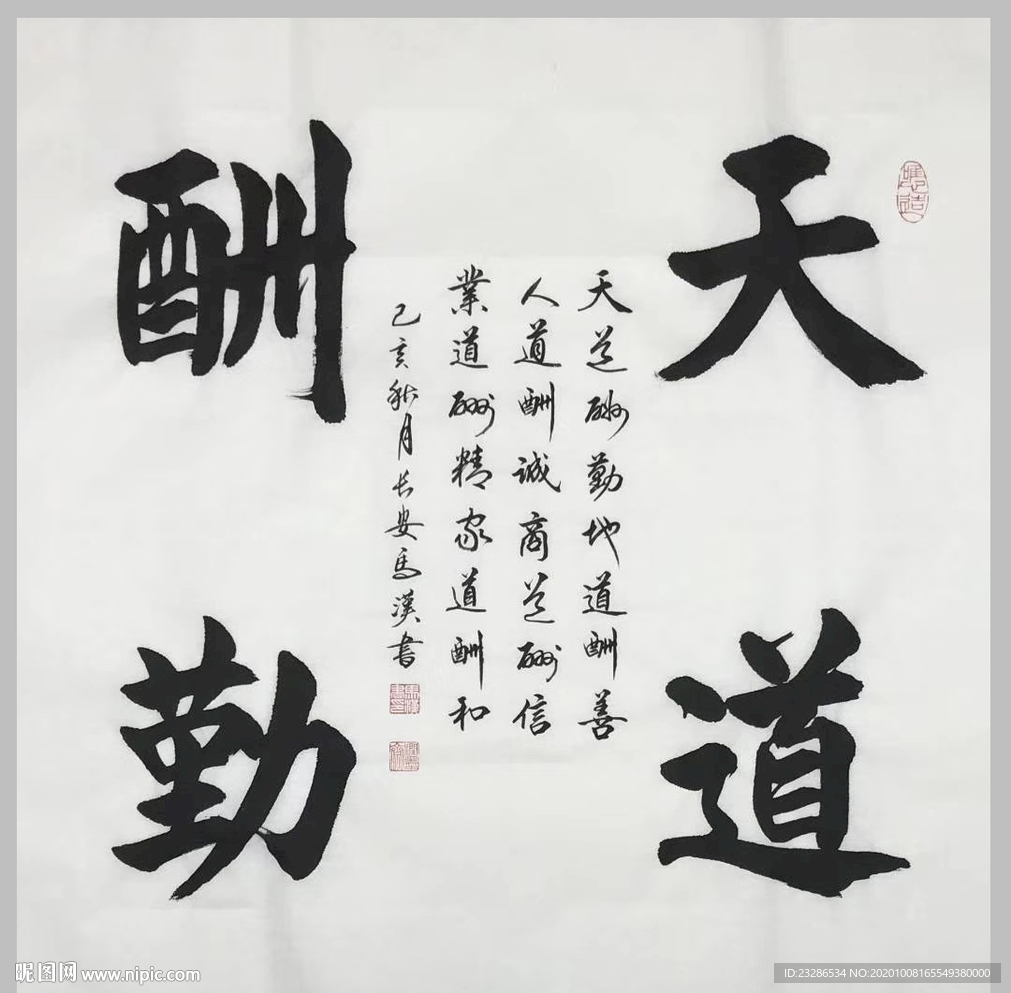 天道
酬勤
天道酬勤地道酬善
人道酬诚商道酬信
業道酬精家道酬和
己亥秋月长安馬漢書
昵图网 www.nipic.com
ID:23286534 NO:20201008165549380000